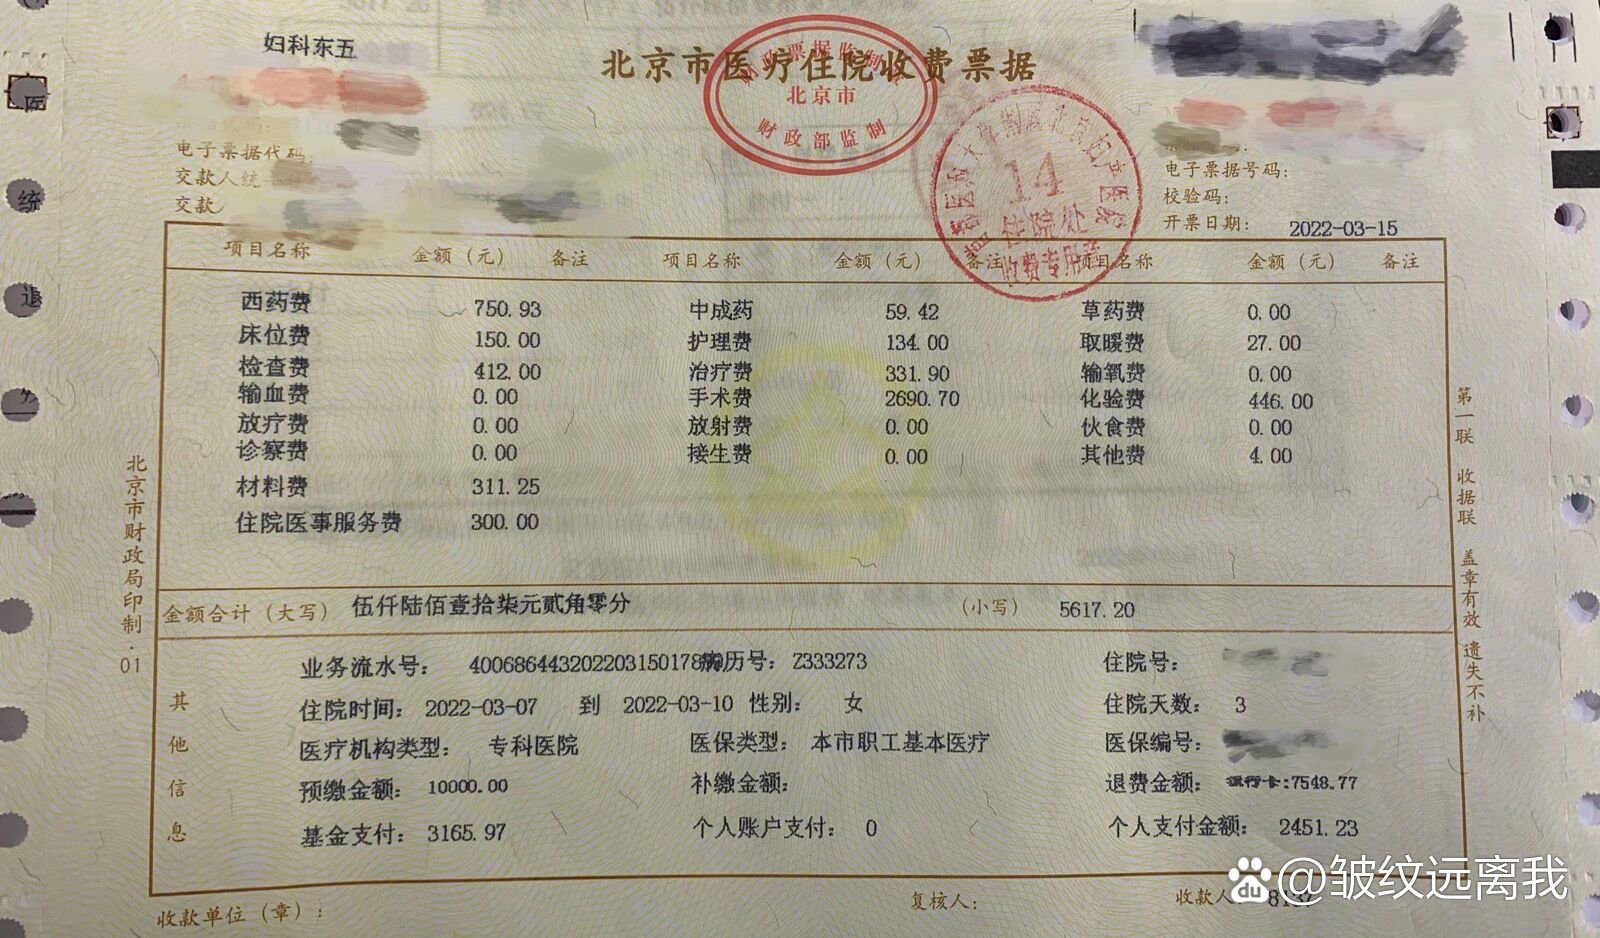 妇科东五
北京市医疗住院收费票据
财政票据监制
北京市
财政部监制
14
住院处
收费专用章
电子票据代码:
交款人统
交款
电子票据号码:
校验码:
开票日期: 2022-03-15
项目名称 金额（元） 备注 项目名称 金额（元） 备注 项目名称 金额（元） 备注
西药费 750.93 中成药 59.42 草药费 0.00
床位费 150.00 护理费 134.00 取暖费 27.00
检查费 412.00 治疗费 331.90 输氧费 0.00
输血费 0.00 手术费 2690.70 化验费 446.00
放疗费 0.00 放射费 0.00 伙食费 0.00
诊察费 0.00 接生费 0.00 其他费 4.00
材料费 311.25
住院医事服务费 300.00
金额合计（大写） 伍仟陆佰壹拾柒元贰角零分 （小写） 5617.20
其他信息
业务流水号: 病历号: Z333273 住院号:
住院时间: 2022-03-07 到 2022-03-10 性别: 女 住院天数: 3
医疗机构类型: 专科医院 医保类型: 本市职工基本医疗 医保编号:
预缴金额: 10000.00 补缴金额: 退费金额: 银行卡:7548.77
基金支付: 3165.97 个人账户支付: 0 个人支付金额: 2451.23
收款单位（章）: 复核人: 收款人:
北京市财政局印制·01
第一联 收据联 盖章有效 遗失不补
医
统
退
@皱纹远离我